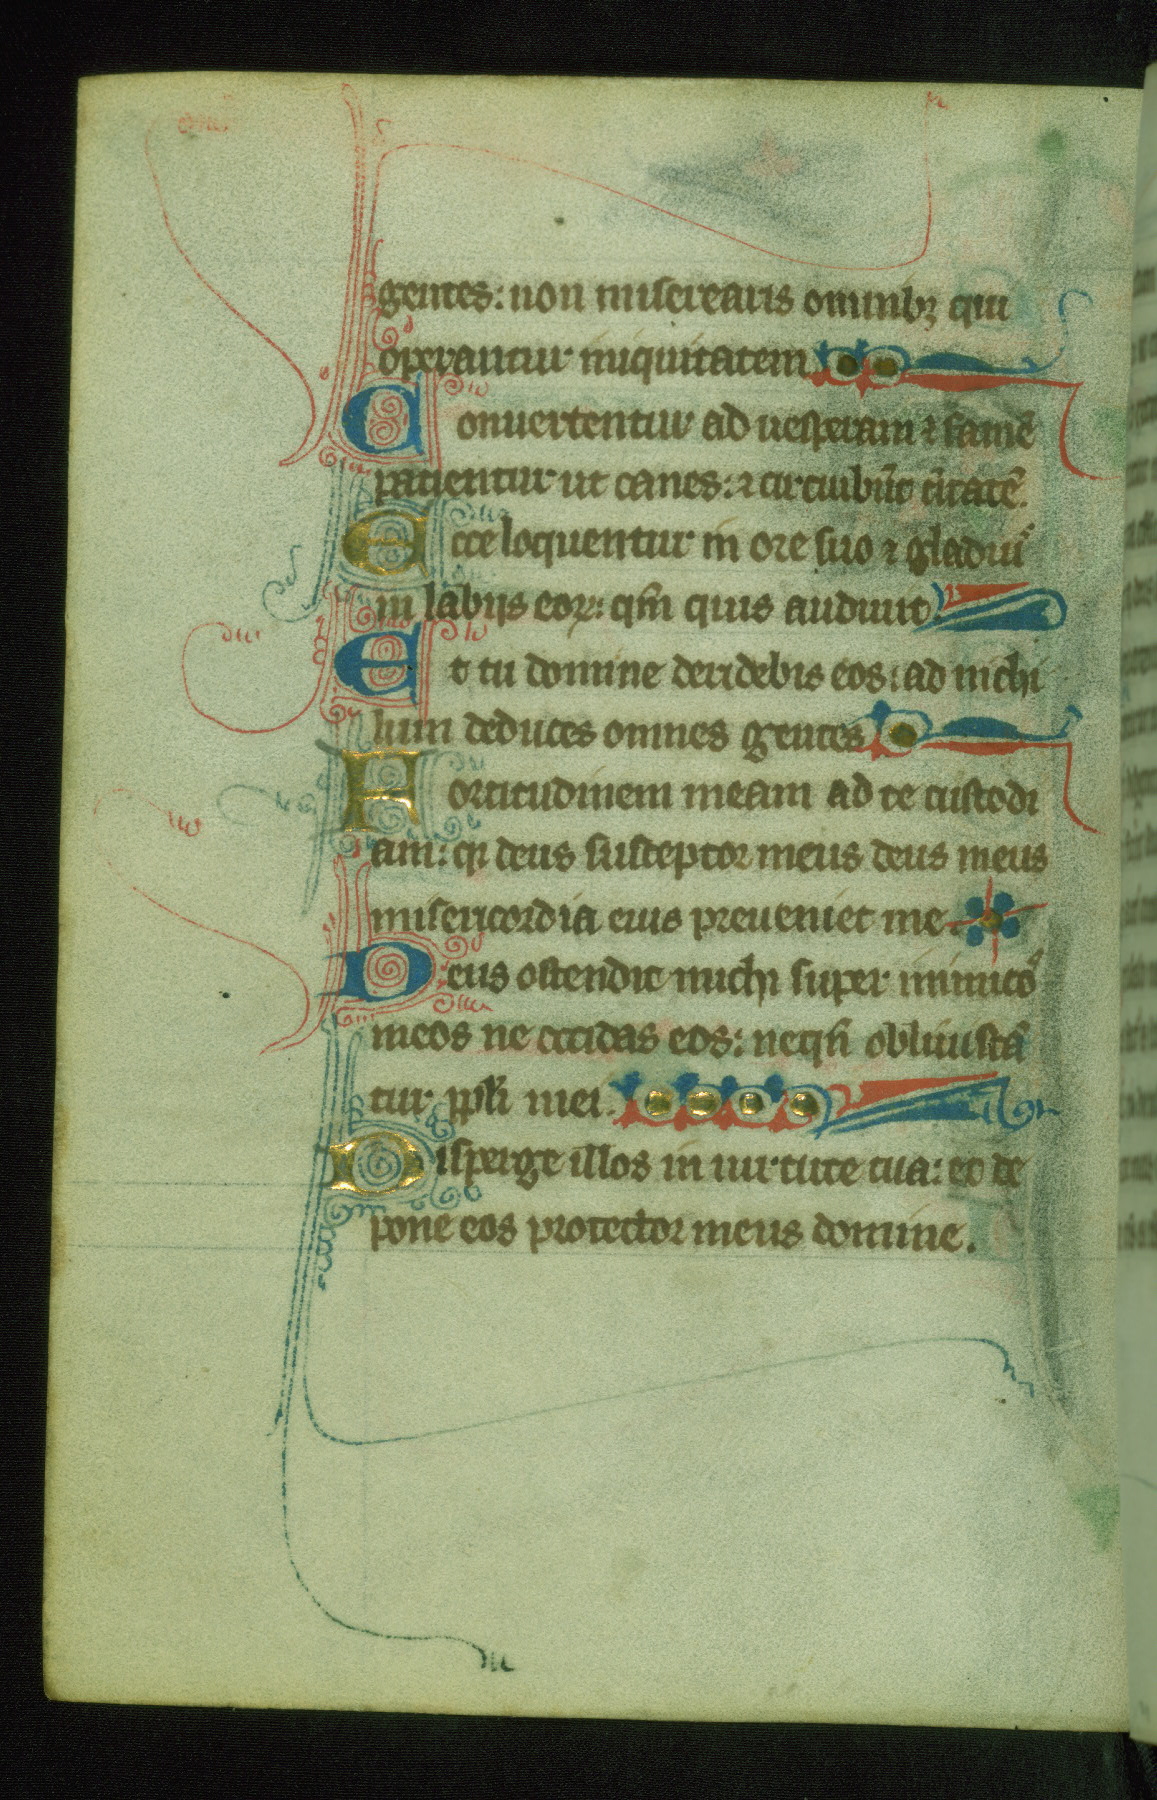 gentes: non miserearis omnibꝫ qui
operantur iniquitatem
Conuertentur ad uesperam ⁊ famē
patientur ut canes: ⁊ circuibūt ciuitatē.
Ecce loquentur in ore suo ⁊ gladiu᷒
in labijs eoꝝ: qm̄ quis audiuit
Et tu domine deridebis eos: ad nichi
lum deduces omnes gentes
Fortitudinem meam ad te custodi
am: qꝛ deus susceptor meus deus meus
misericordia eius preueniet me.
Deus ostendit michi super inimicos
meos ne occidas eos: neqn̄ obliuiscā
tur ppl̄i mei.
Disperge illos in uirtute tua: et de
pone eos protector meus domine.